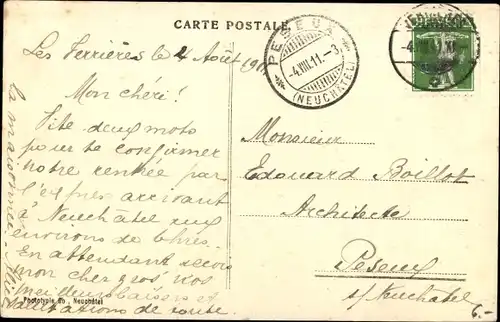 CARTE POSTALE
PESEUX
-4.VIII.11.-3
(NEUCHÂTEL)
Les Verrières le 4 Août 1911
Mon chéri!
Vite deux mots
pour te confirmer
notre rentrée par
l'express arrivant
à Neuchâtel aux
environs de 6 hres.
En attendant reçois
mon cher gros nos
meilleurs baisers et
salutations de toute
la maisonnée.
Monsieur
Edouard Boillot
Architecte
Peseux
s/Neuchâtel
Phototypie Co., Neuchâtel
6.-